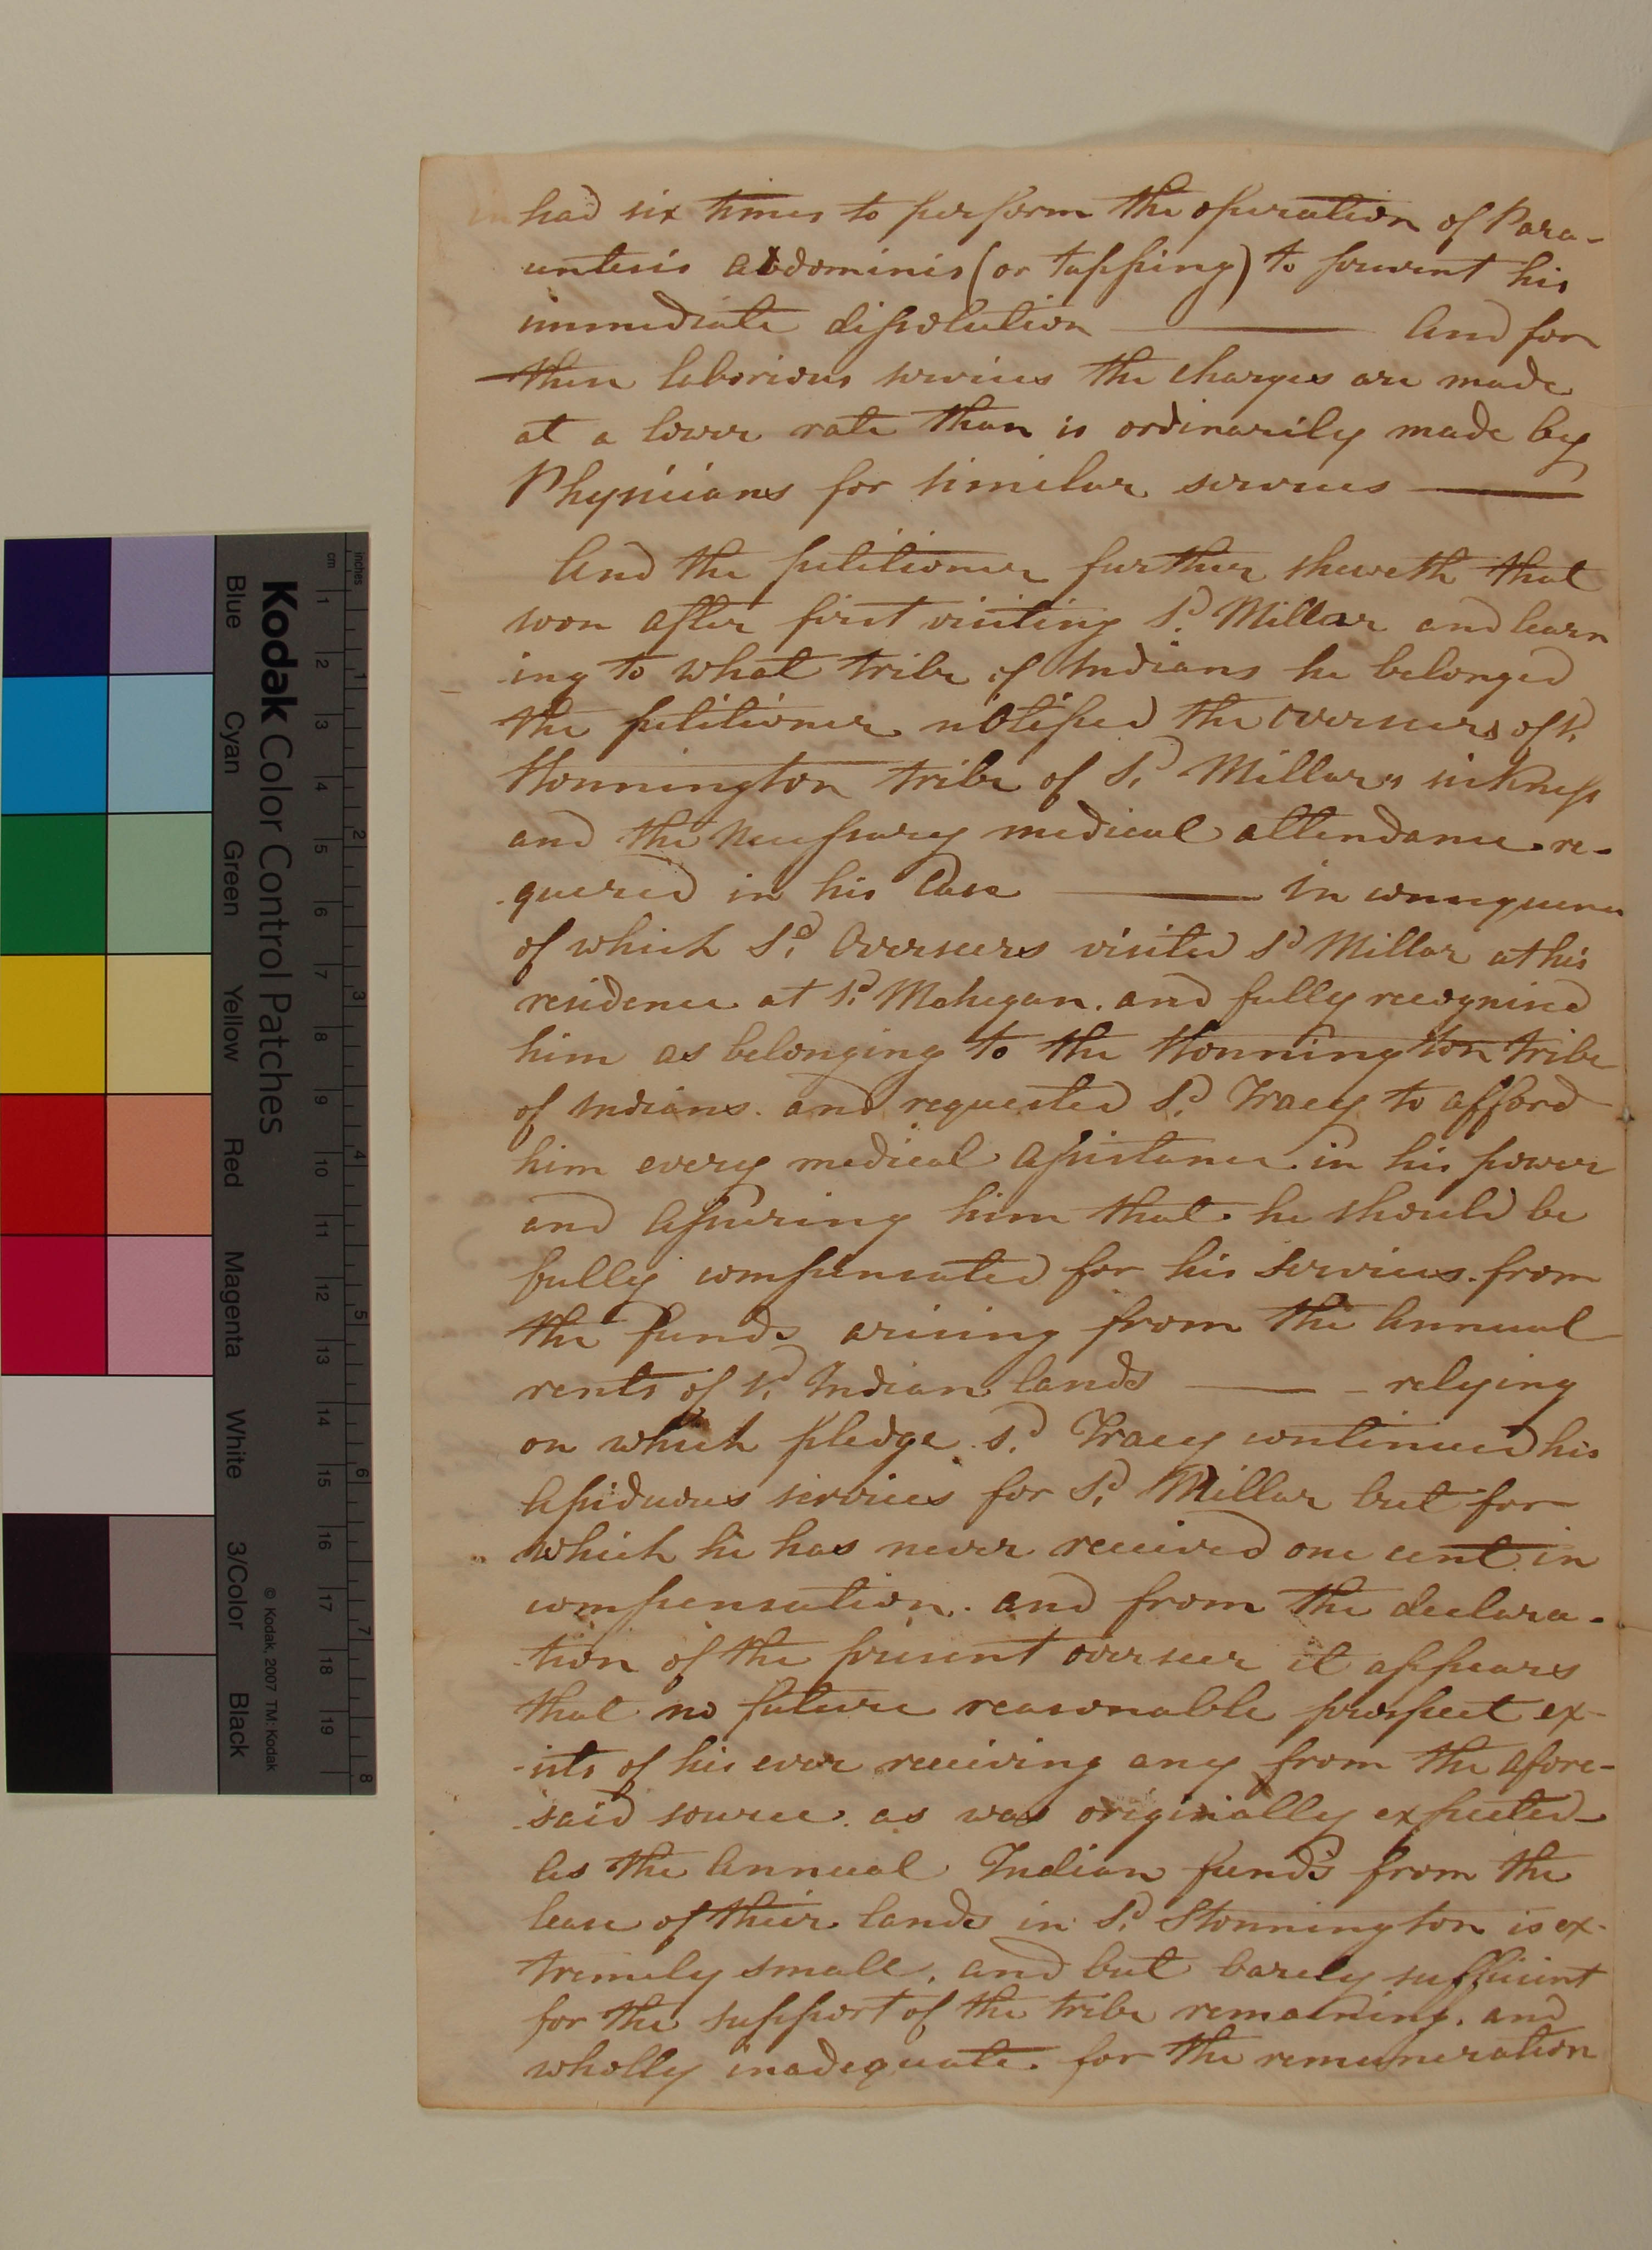 had six times to perform the operation of Para-
centesis abdominis (or tapping) to prevent his
immediate dissolution ——— And for
these laborious services the charges are made
at a lower rate than is ordinarily made by
Physicians for similar services ———
And the petitioner further sheweth that
soon after first visiting Sd. Millar and learn
ing to what tribe of Indians he belonged
the petitioner notified the overseers of sd.
Stonnington tribe of Sd. Millars sickness
and the Necessary medical attendance re-
quered in his Case ——— In consequence
of which Sd. Overseers visited Sd Millar at his
residence at sd. Mohegan. and fully recognised
him as belonging to the Stonnington tribe
of Indians. and requested Sd. Tracy to afford
him every medical Assistance in his power
and Assuring him that he should be
fully compensated for his Services. from
the funds arising from the Annual
rents of sd. Indian lands ——— - relying
on which pledge sd. Tracy continued his
Assiduous services for Sd. Millar but for
which he has never received one cent in
compensation. and from the declara-
tion of the present overseer it appears
that no future reasonable prospect ex-
ists of his ever receiving any from the afore-
said source. as was originally expected
As the Annual Indian funds from the
lease of their lands in Sd. Stonnington is ex-
tremely small, and but barely sufficient
for the support of the tribe remaining. and
wholly inadequate. for the remuneration
Kodak Color Control Patches
Blue Cyan Green Yellow Red Magenta White 3/Color Black
© Kodak, 2007 TM: Kodak
cm 1 2 3 4 5 6 7 8 9 10 11 12 13 14 15 16 17 18 19
inches 1 2 3 4 5 6 7 8